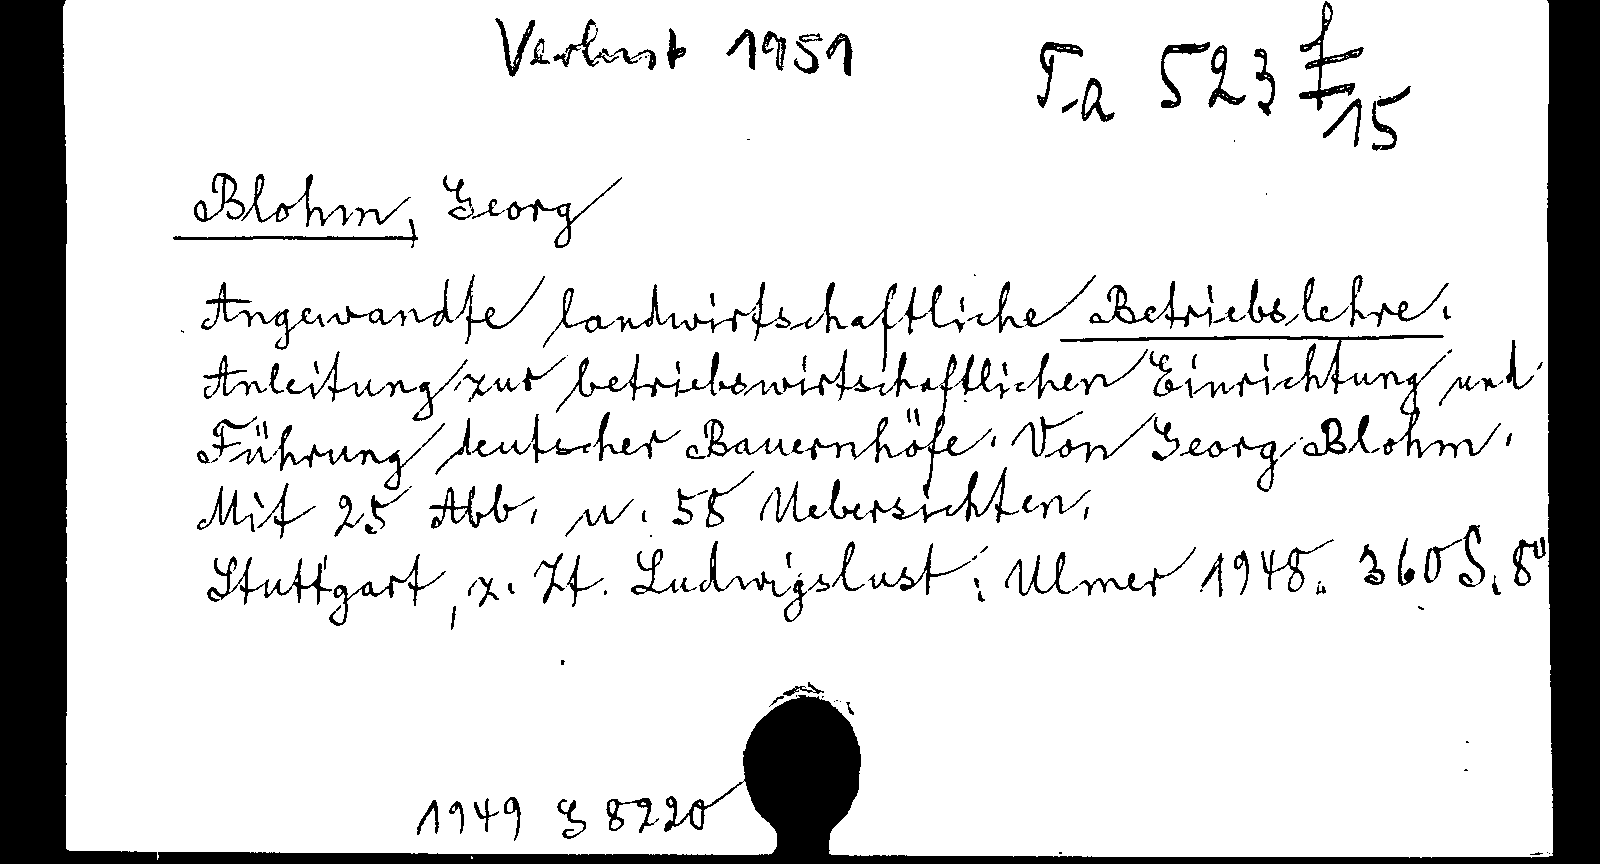 Verlust 1951
Ta 523 f/15
Blohm, Georg
Angewandte landwirtschaftliche Betriebslehre.
Anleitung zur betriebswirtschaftlichen Einrichtung und
Führung deutscher Bauernhöfe. Von Georg Blohm.
Mit 25 Abb. u. 58 Uebersichten.
Stuttgart, z. Zt. Ludwigslust: Ulmer 1948. 360 S. 8°
1949 G 8220